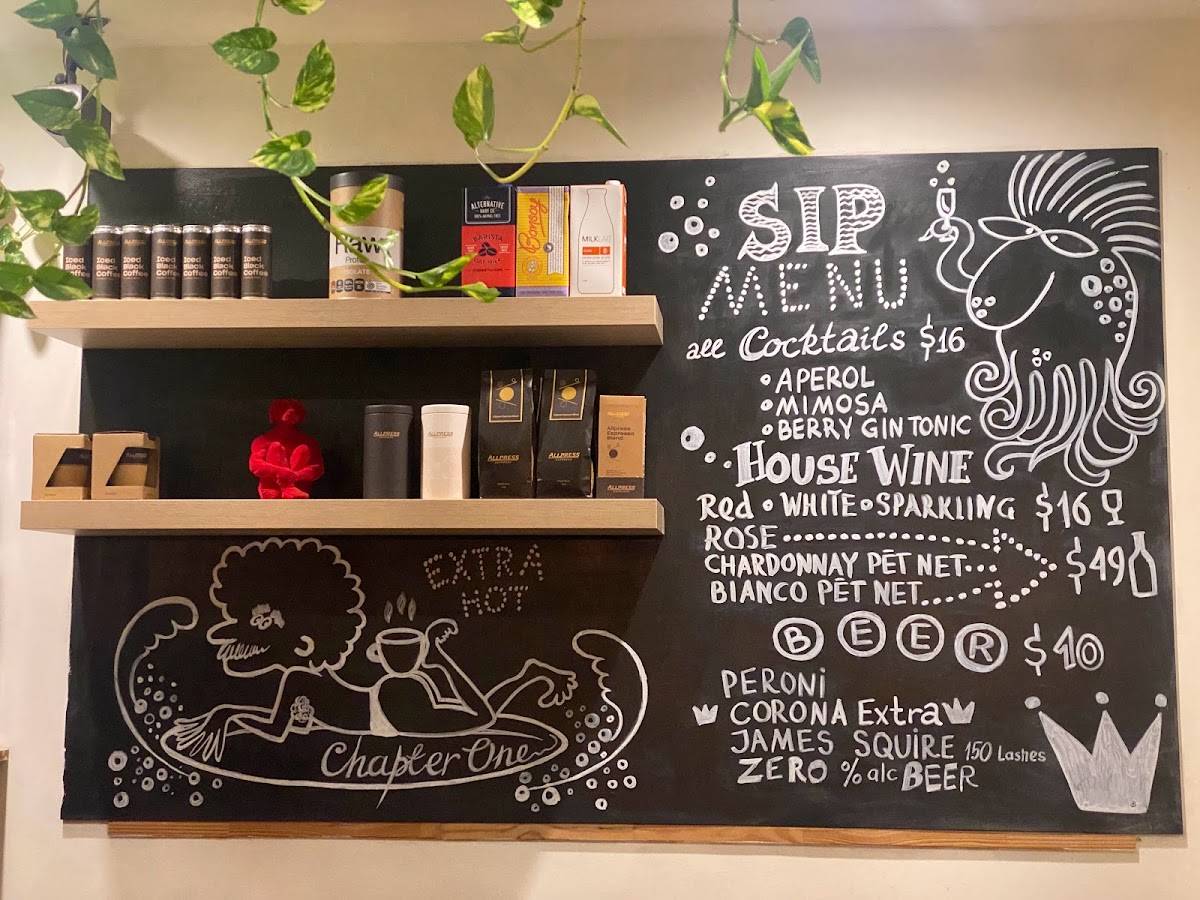 Iced Black Coffee
Iced Black Coffee
Iced Black Coffee
Iced Black Coffee
Iced Black Coffee
Iced Black Coffee
Raw
Protein
ISOLATE
ALTERNATIVE
DAIRY CO
BARISTA
Bonsoy
MILKLAB
ALLPRESS
ALLPRESS
ALLPRESS
ESPRESSO
ALLPRESS
ESPRESSO
ALLPRESS
Allpress
Espresso
Blend
ALLPRESS
EXTRA
HOT
Chapter One
SIP
MENU
all Cocktails $16
APEROL
MIMOSA
BERRY GIN TONIC
HOUSE WINE
Red • WHITE • SPARKLING $16
ROSE
CHARDONNAY PĒT NET... $49
BIANCO PĒT NET....
BEER $10
PERONi
CORONA Extra
JAMES SQUIRE 150 Lashes
ZERO % alc BEER